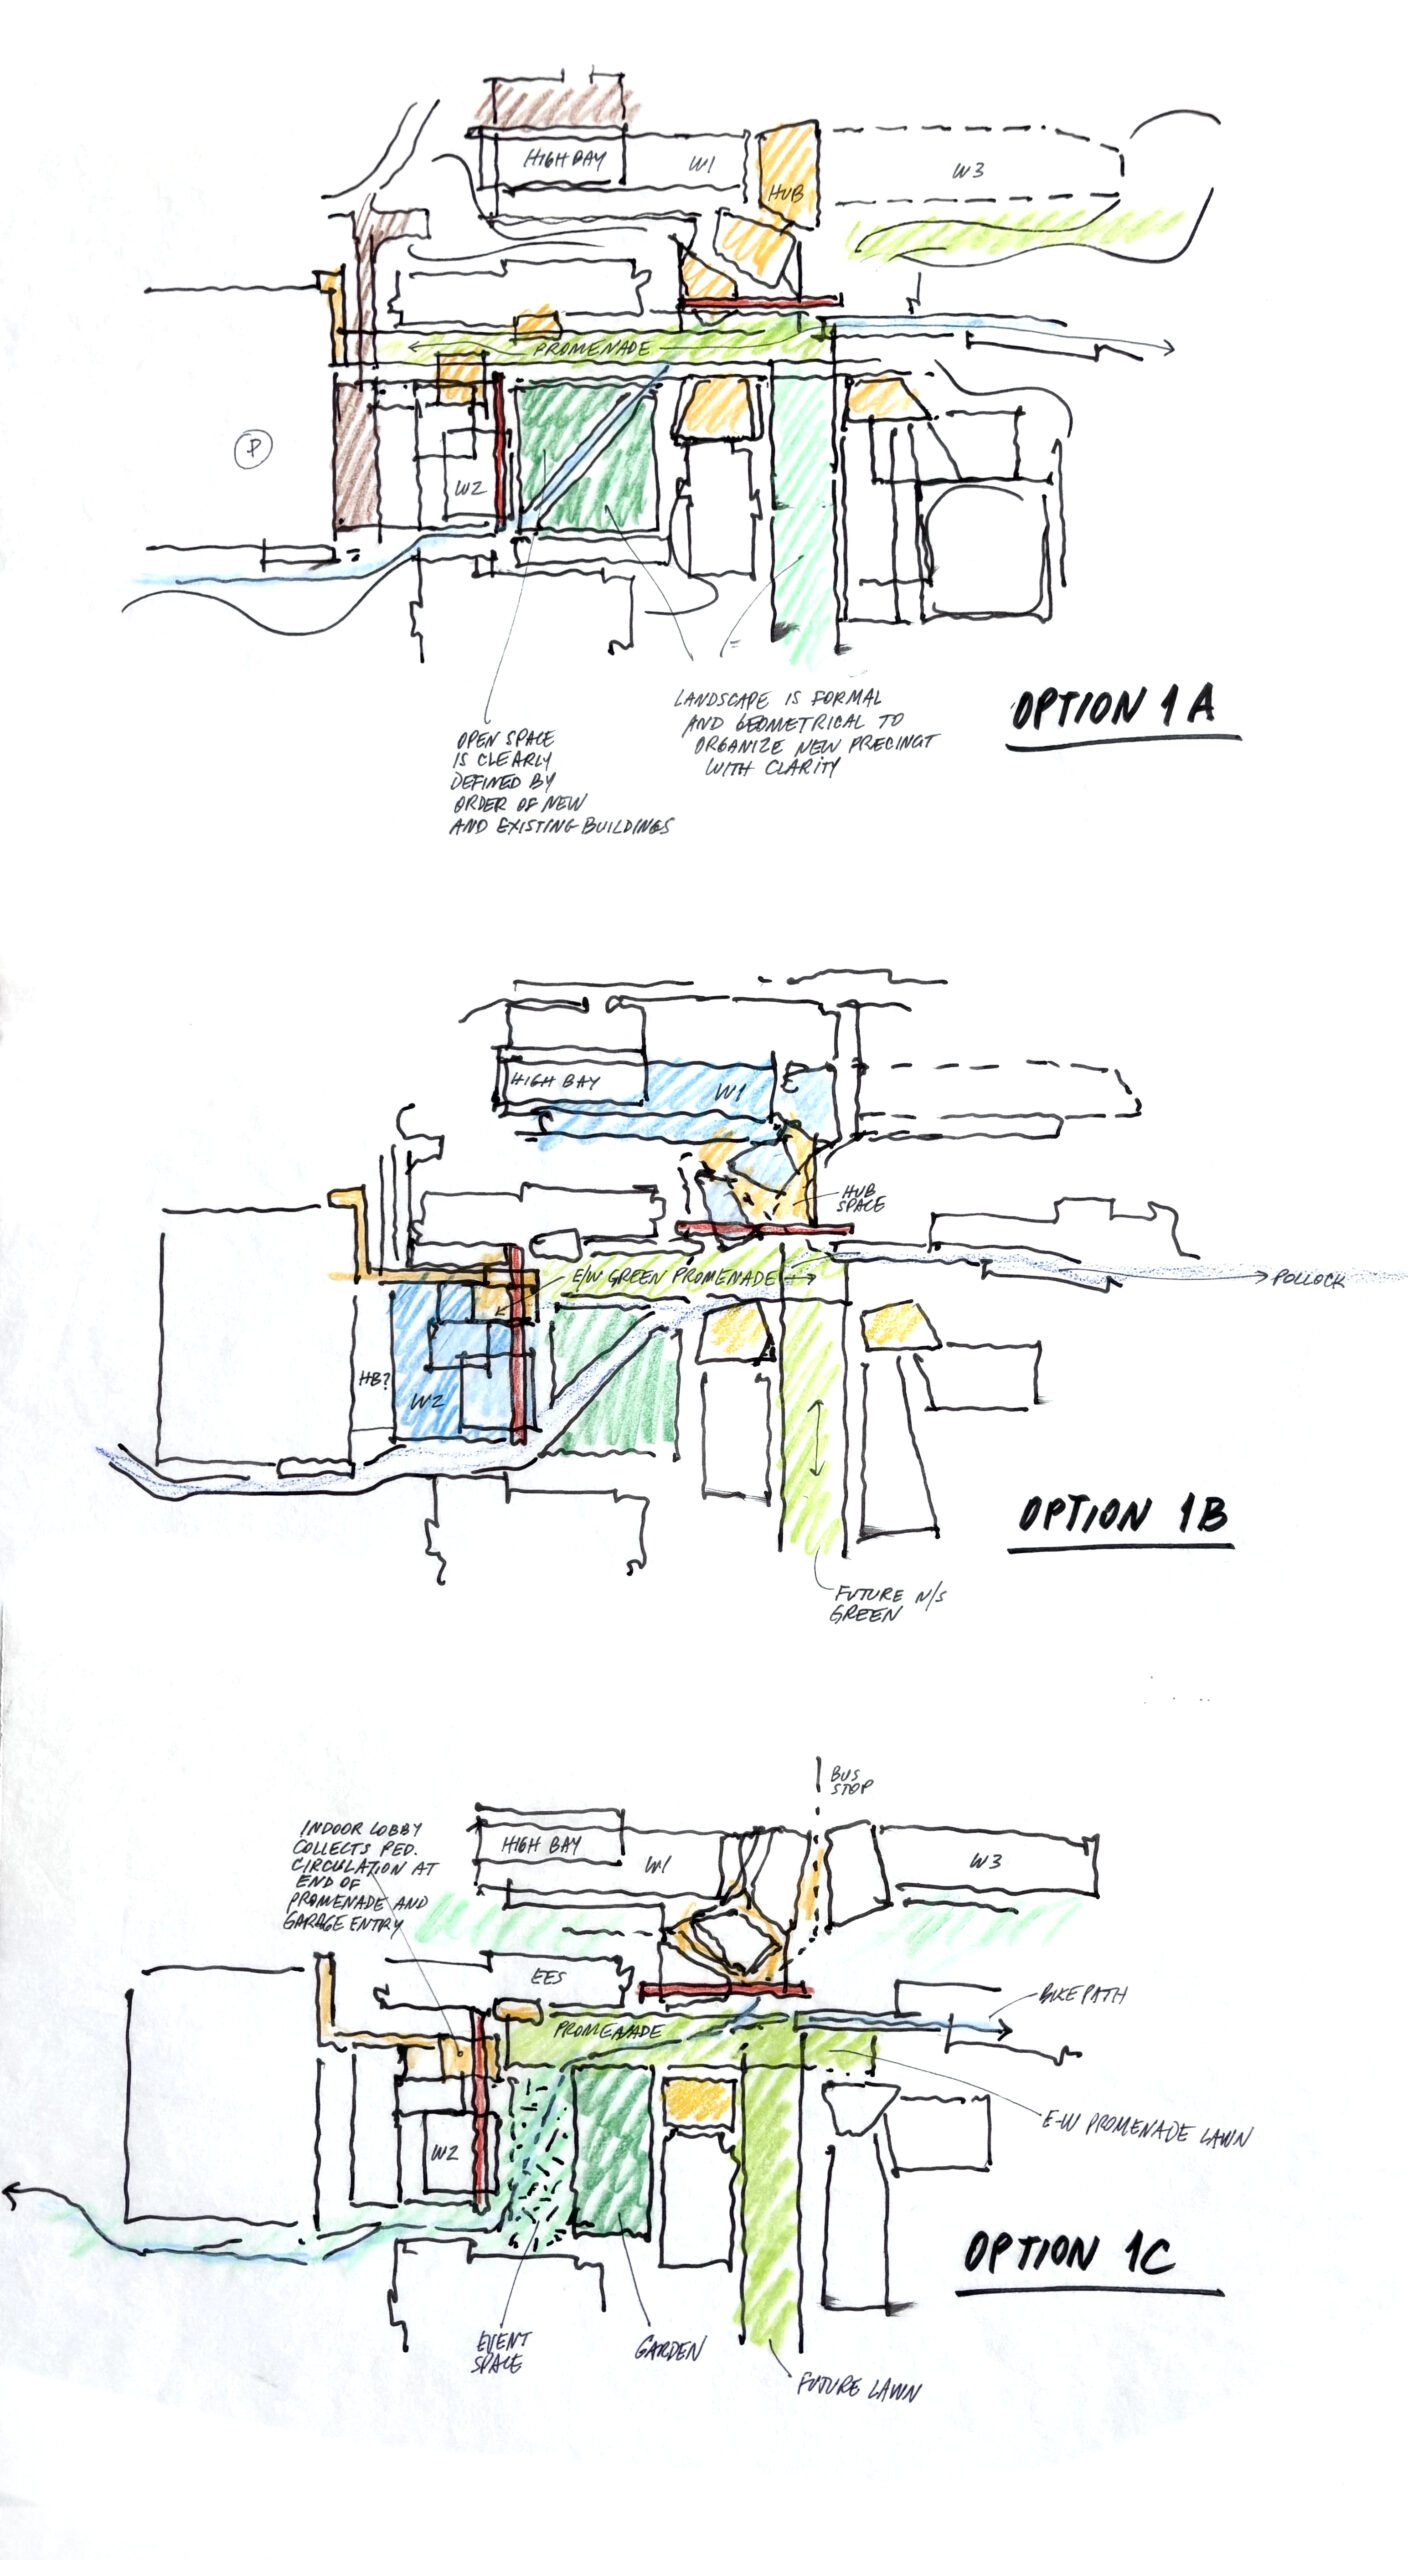 HIGH BAY
W1
HUB
W3
PROMENADE
P
W2
OPEN SPACE
IS CLEARLY
DEFINED BY
ORDER OF NEW
AND EXISTING BUILDINGS
LANDSCAPE IS FORMAL
AND GEOMETRICAL TO
ORGANIZE NEW PRECINCT
WITH CLARITY
OPTION 1A
HIGH BAY
W1
HUB
SPACE
E/W GREEN PROMENADE
POLLOCK
HB?
W2
OPTION 1B
FUTURE N/S
GREEN
BUS
STOP
INDOOR LOBBY
COLLECTS PED.
CIRCULATION AT
END OF
PROMENADE AND
GARAGE ENTRY
HIGH BAY
W1
W3
EES
BIKE PATH
PROMENADE
E-W PROMENADE LAWN
W2
OPTION 1C
EVENT
SPACE
GARDEN
FUTURE LAWN